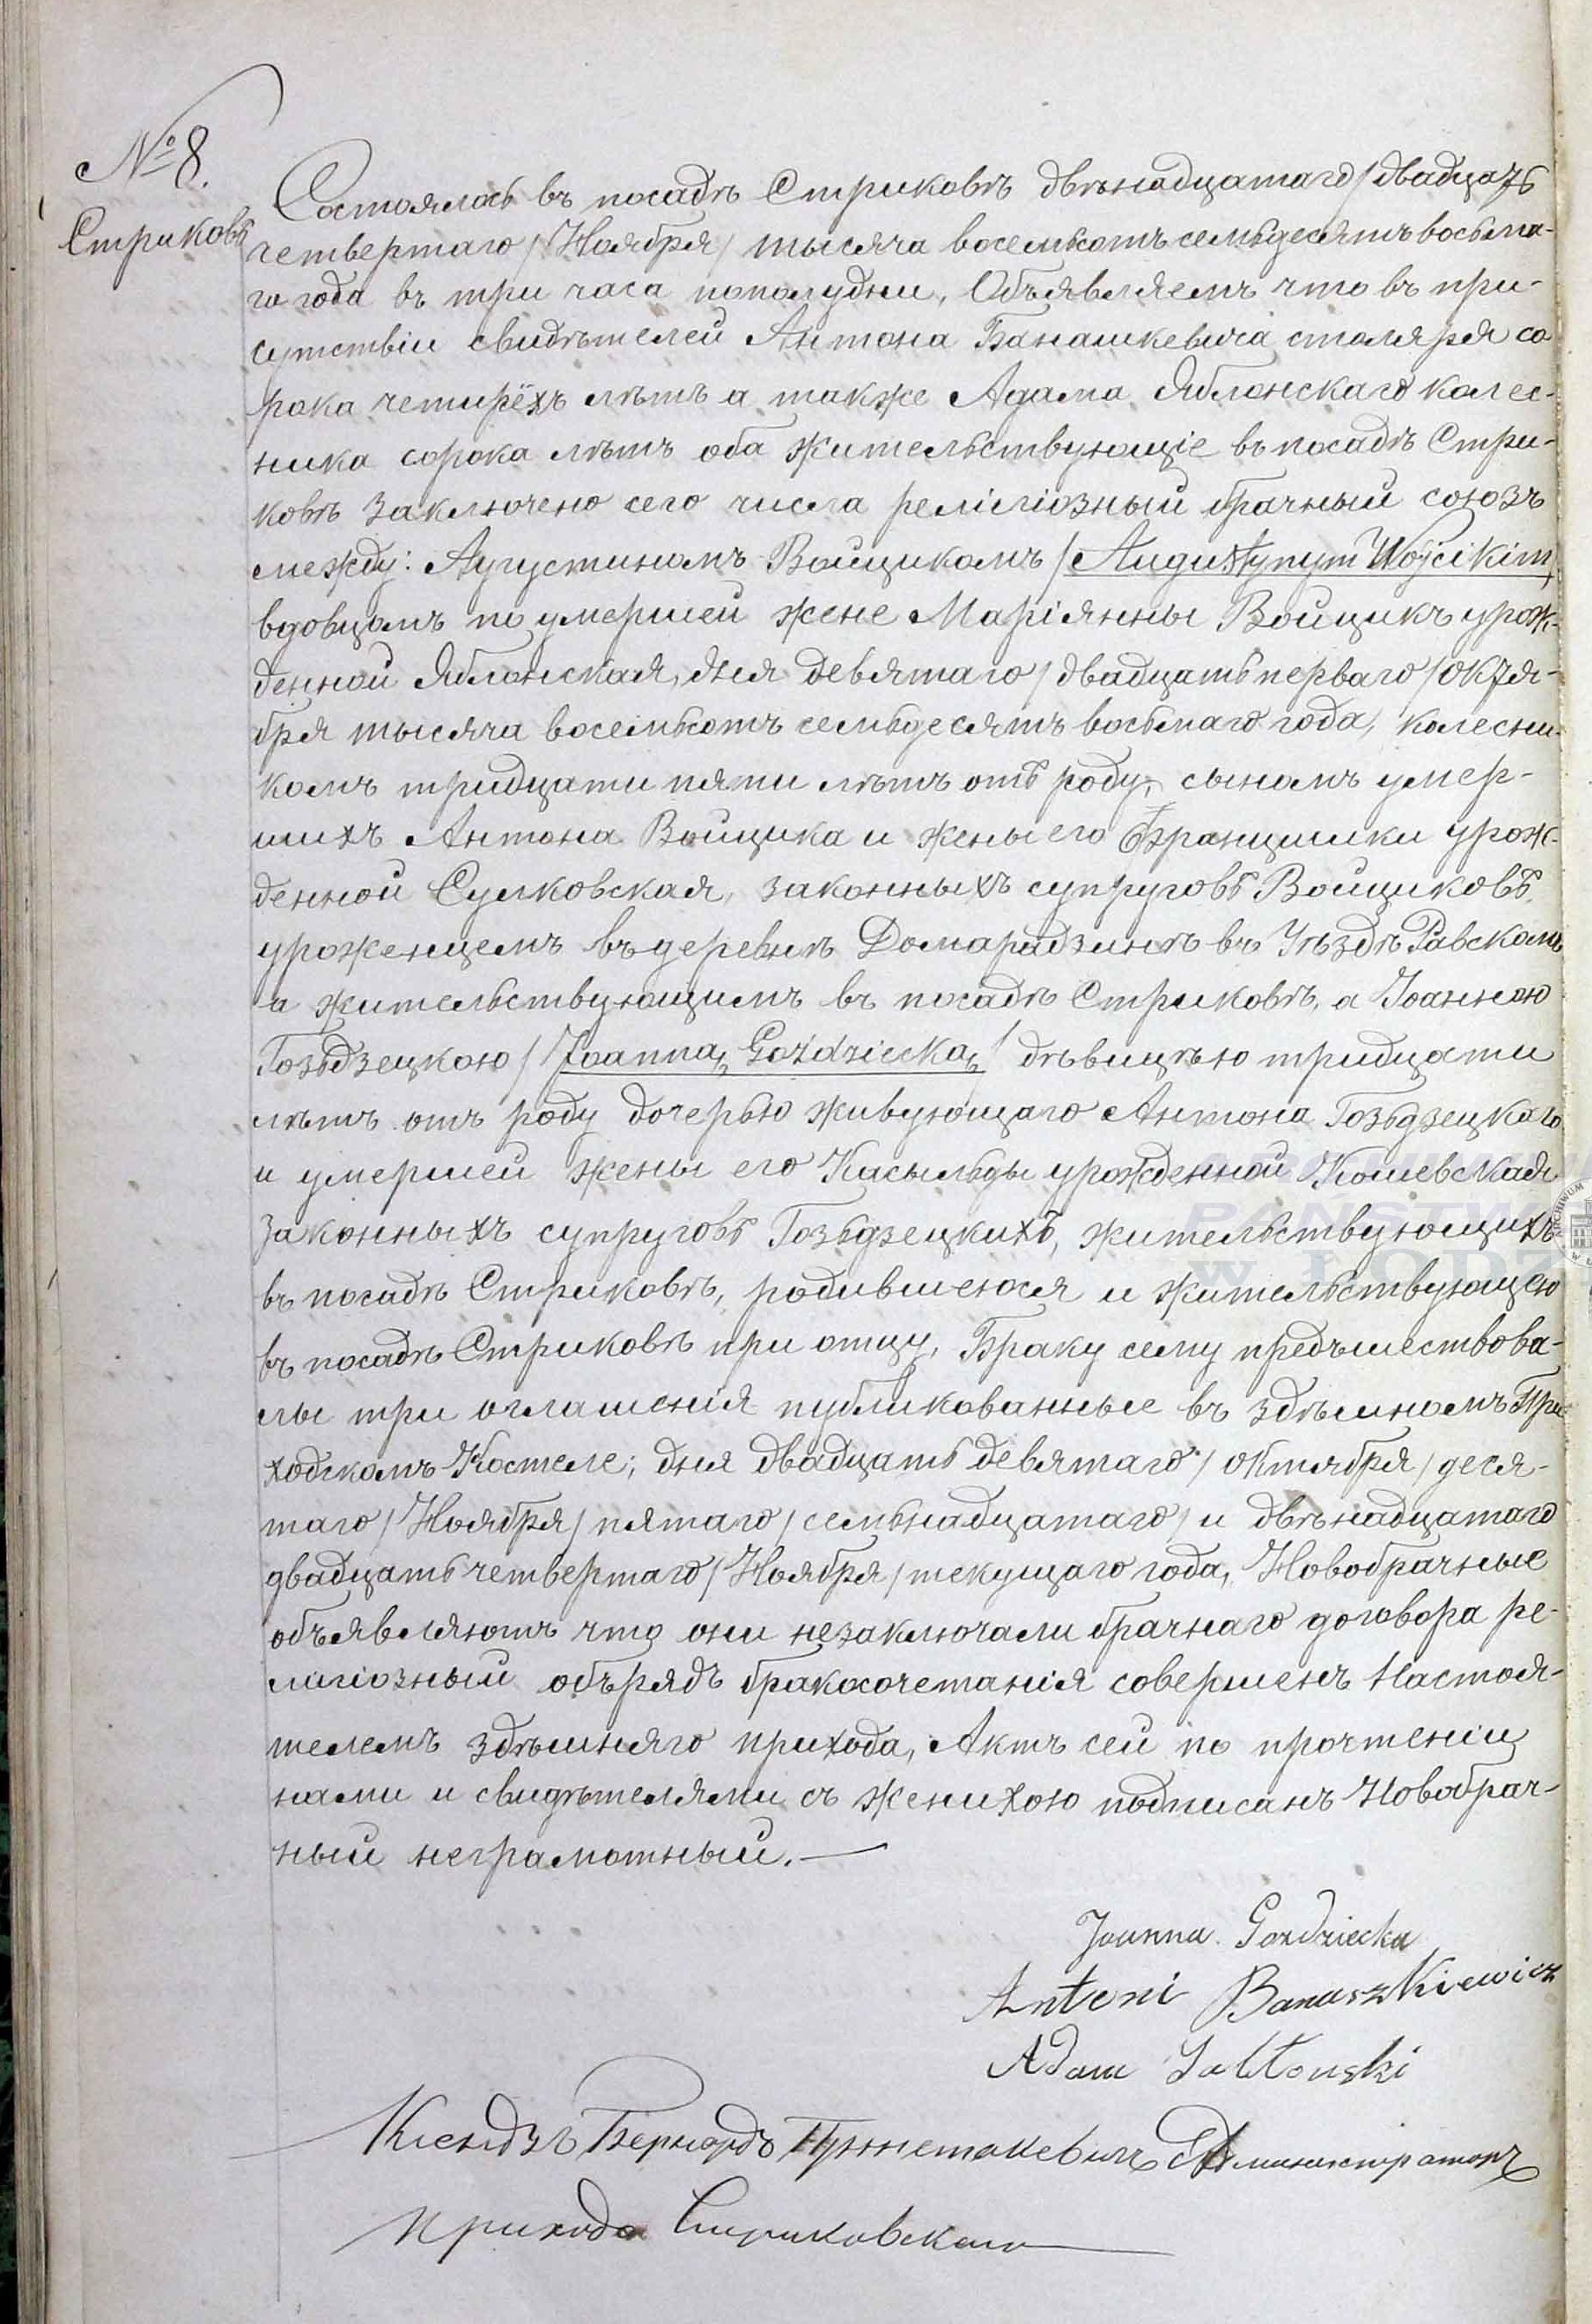 № 8.
Стриковъ
Состоялось въ посадѣ Стриковѣ двѣнадцатаго / двадцать
четвертаго / Ноября / тысяча восемьсотъ семьдесятъ восьма-
го года въ три часа пополудни, Объявляемъ что въ при-
сутствіи свидѣтелей Антона Банашкевича столяря со-
рока четырёхъ лѣтъ а также Адама Яблонскаго колес-
ника сорока лѣтъ оба жительствующіе въ посадѣ Стри-
ковѣ заключено сего числа религіозный брачный союзъ
между: Аугустиномъ Войцикомъ / Augustynym Wojcikim
вдовцомъ по умершей жене Маріянны Войцикъ урож-
денной Яблонская, дня девятаго / двадцать перваго / октя-
бря тысяча восемьсотъ семьдесятъ восьмаго года, колесни-
комъ тридцати пяти лѣтъ отъ роду, сыномъ умер-
шихъ Антона Войцика и жены его Францишки урож-
денной Сулковская, законныхъ супруговъ Войциковъ,
уроженцемъ въ деревнѣ Домарадзинѣ въ Уѣздѣ Равскомъ
а жительствующимъ въ посадѣ Стриковѣ, а Іоанною
Гозьдзецкою / Joanną Goździecką / дѣвицѣю тридцати
лѣтъ отъ роду дочерью живующаго Антона Гозьдзецкаго
и умершей жены его Касыльды урожденной Кошевская
законныхъ супруговъ Гозьдзецкихъ, жительствующихъ
въ посадѣ Стриковѣ, родившеюся и жительствующею
въ посадѣ Стриковѣ при отцу, Браку сему предъшествова-
лы три оглашенія публикованные въ здѣшномъ При-
ходскомъ Костеле; дня двадцать девятаго / октября / деся-
таго / Ноября / пятаго / семьнадцатаго / и двѣнадцатаго
двадцать четвертаго / Ноября / текущаго года, Новобрачные
объявляютъ что они незаключали брачнаго договора ре-
лигіозный обърядъ бракосочетанія совершенъ Настоя-
телемъ здѣшняго прихода, Актъ сей по прочтеніи
нами и свидѣтелями съ женихою подписанъ Новобрач-
ный неграмотный. —
Joanna Gozdziecka
Antoni Banaszkiewicz
Adam Jabłonski
Ксендзъ Бернардъ Администраторъ
прихода Стриковскаго